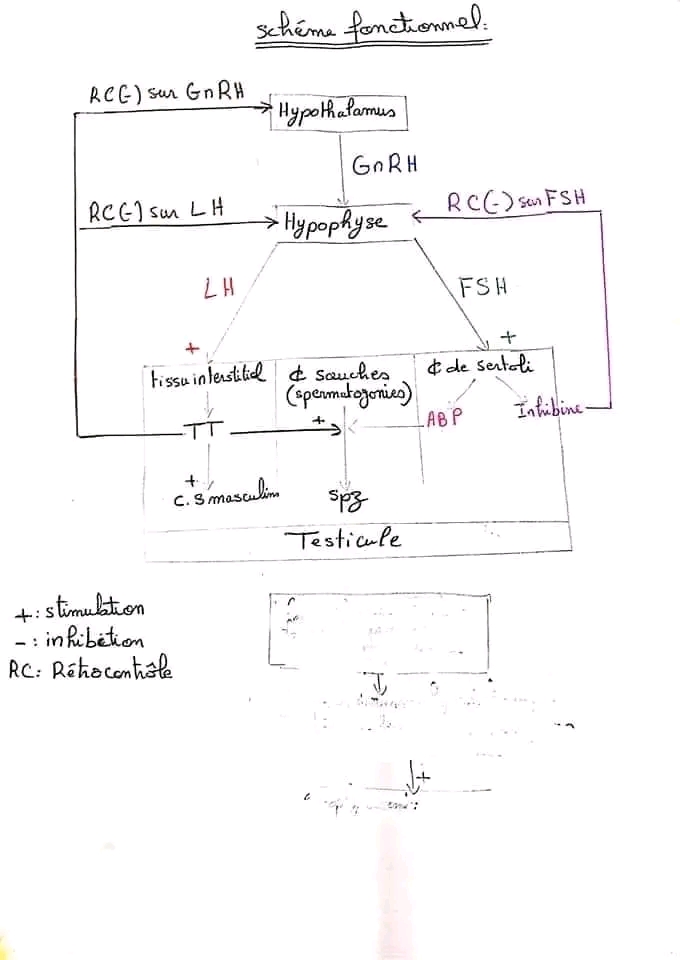 schéma fonctionnel:
RC(-) sur GnRH
Hypothalamus
GnRH
RC(-) sur LH
Hypophyse
RC(-) sur FSH
LH
FSH
+
+
tissu interstitiel
¢ souches
(spermatogonies)
¢ de sertoli
TT
+
ABP
Inhibine
+
C.S masculins
spz
Testicule
+: stimulation
- : inhibition
RC: Rétrocontrôle
+